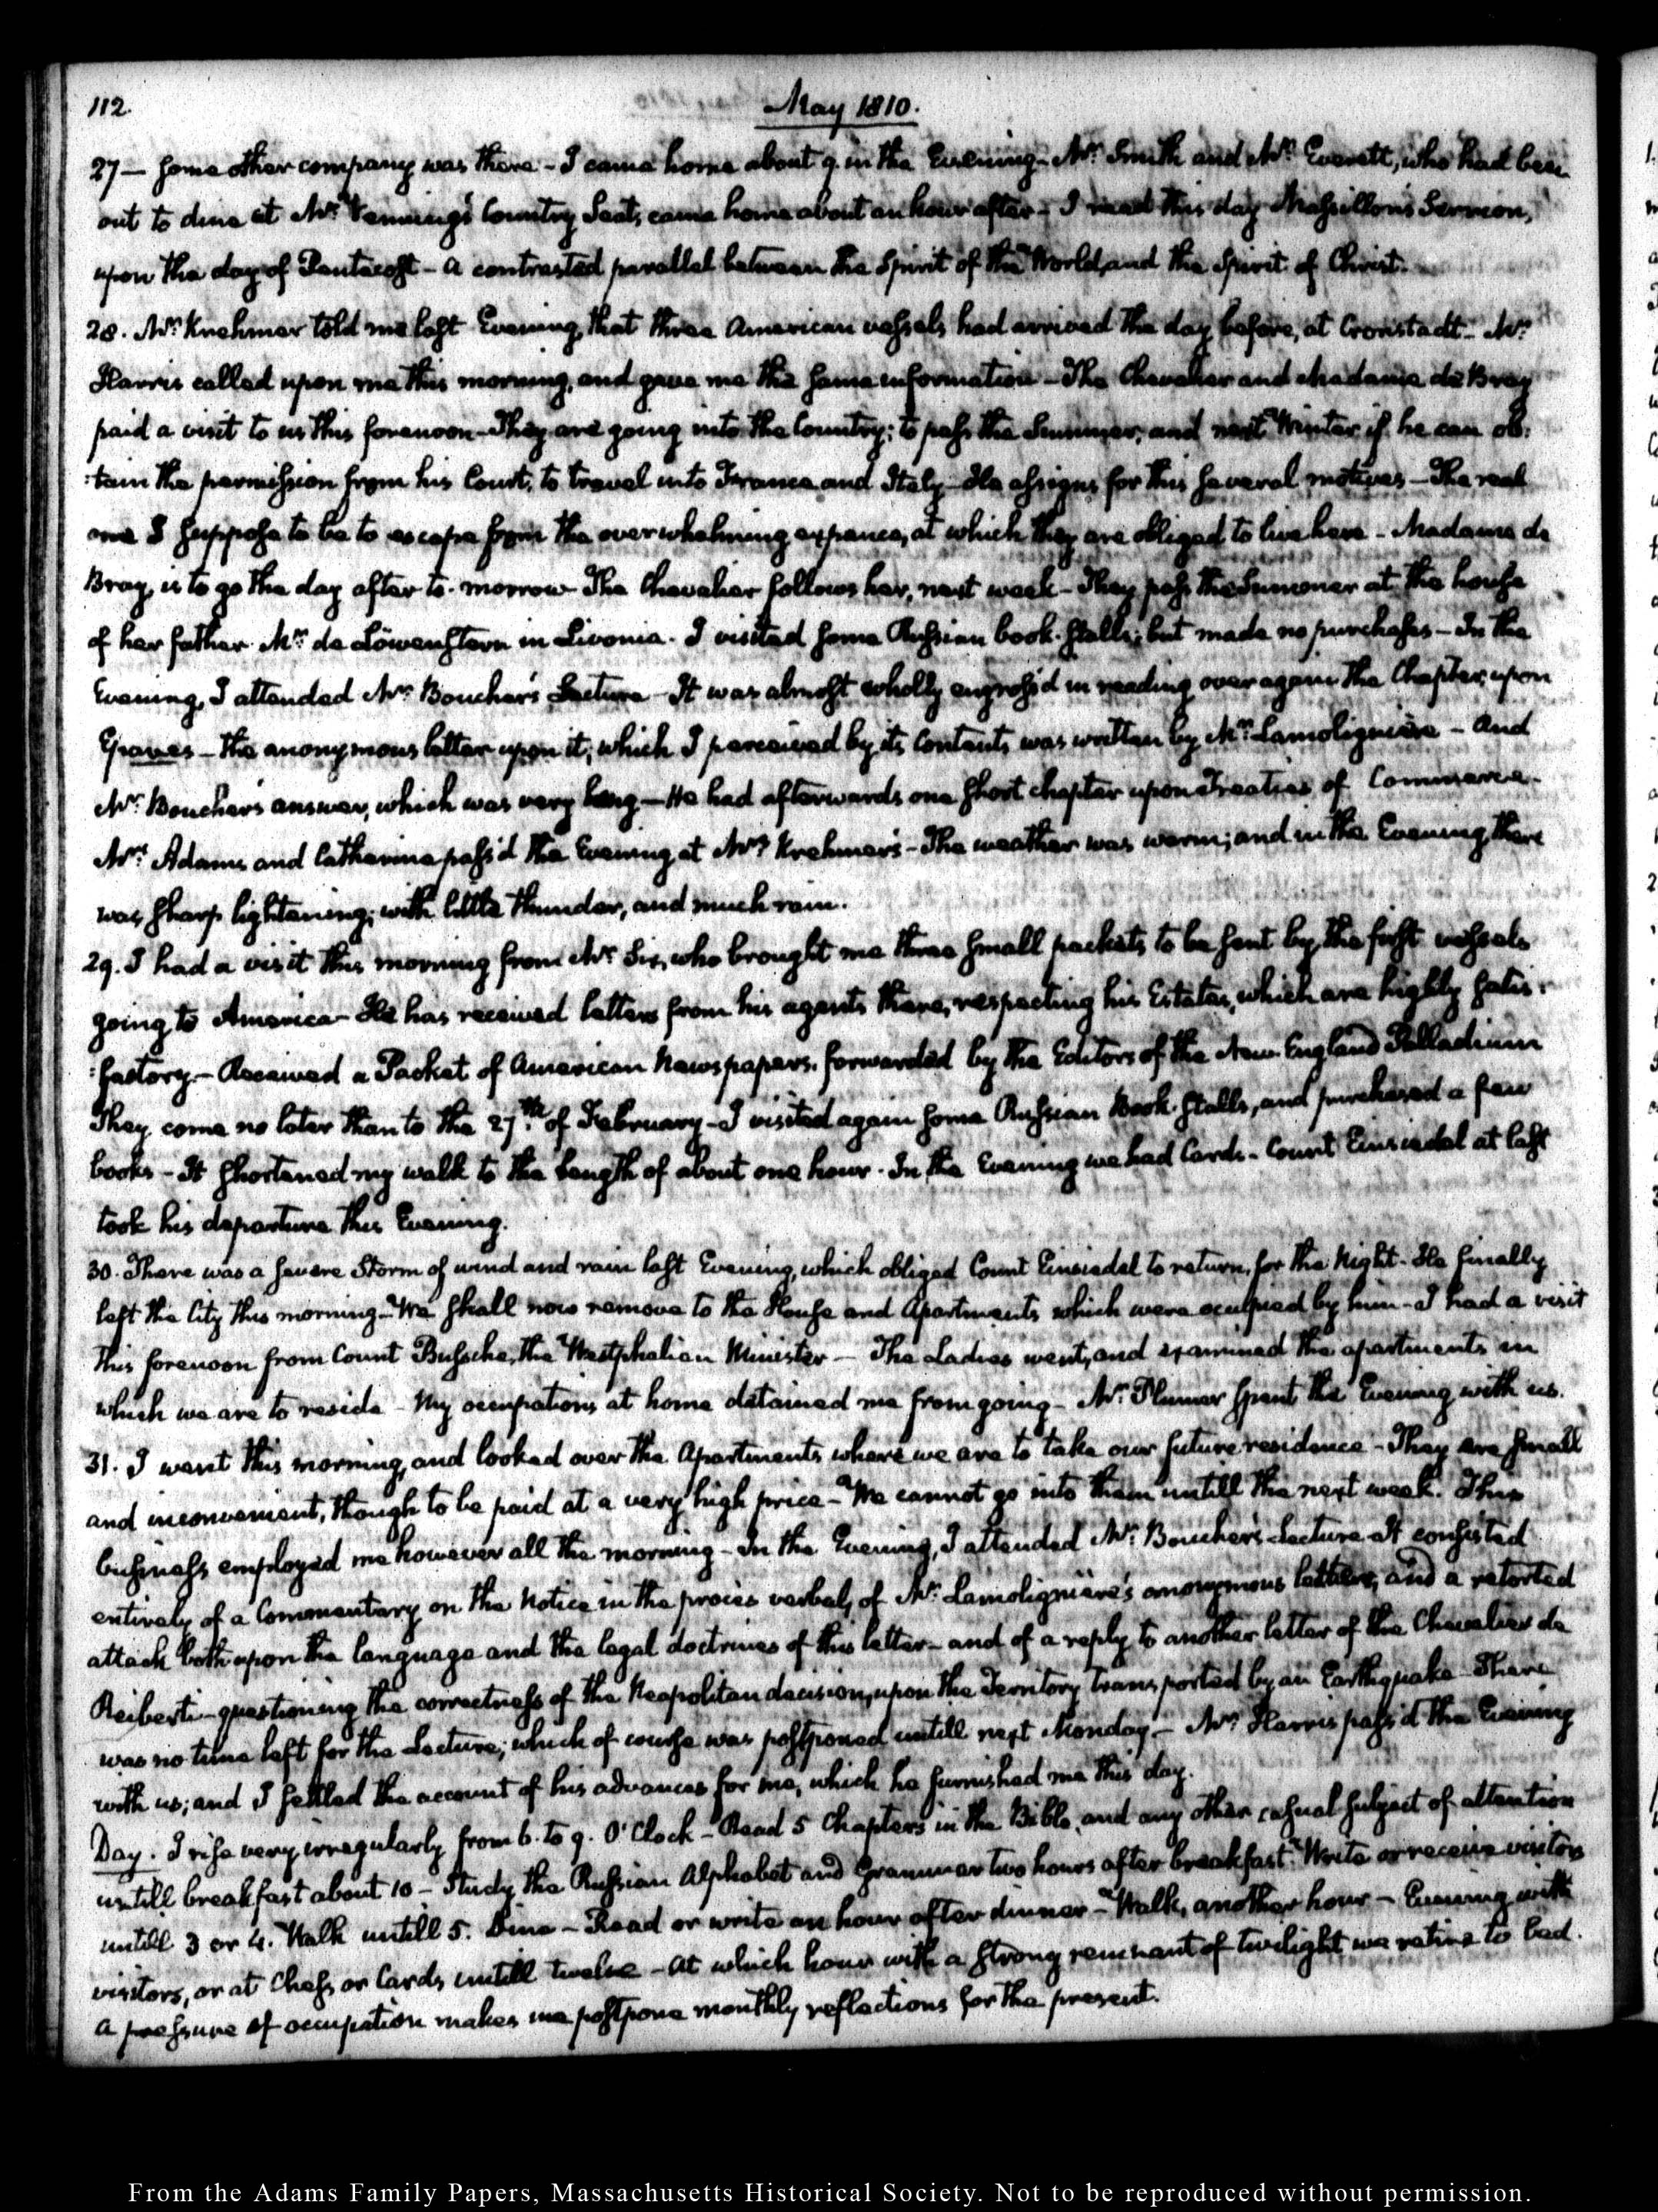 112.
May 1810.
27 — some other company was there - I came home about 9 in the Evening - Mr. Smith and Mr. Everett, who had been
out to dine at Mr. Venning's Country Seat, came home about an hour after - I read this day Massillon's Sermon,
upon the day of Pentecost - a contrasted parallel between the Spirit of the World, and the Spirit of Christ.
28. Mr. Krehmer told me last Evening, that three American vessels had arrived the day before, at Cronstadt - Mr.
Harris called upon me this morning, and gave me the same information - The Chevalier and Madame de Bray
paid a visit to us this forenoon - They are going into the Country; to pass the Summer, and next Winter if he can ob:
:tain the permission from his Court, to travel into France and Italy - He assigns for this several motives - The real
one I suppose to be to escape from the overwhelming expence, at which they are obliged to live here - Madame de
Bray, is to go the day after to-morrow - The Chevalier follows her, next week - They pass the Summer at the house
of her father Mr. de Löwenstern in Livonia. I visited some Russian book-stalls; but made no purchases - In the
Evening, I attended Mr. Boucher's Lecture - It was almost wholly engross'd in reading over again the Chapter, upon
Graves - the anonymous letter upon it, which I perceived by its contents was written by Mr. Lamolignière - and
Mr. Boucher's answer, which was very long - He had afterwards one short chapter upon Treaties of Commerce.
Mrs. Adams and Catharine pass'd the Evening at Mrs. Krehmer's - The weather was warm; and in the Evening, there
was sharp lightening; with little thunder, and much rain.
29. I had a visit this morning from Mr. Six, who brought me three small packets to be sent by the first vessels
going to America - He has received letters from his agents there, respecting his Estates, which are highly satis:
:factory. - Received a Packet of American Newspapers. forwarded by the Editors of the New-England Palladium
They come no later than to the 27th. of February - I visited again some Russian Book-stalls, and purchased a few
books - It shortened my walk to the length of about one hour. In the Evening we had Cards - Count Einsiedel at last
took his departure this Evening.
30. There was a severe Storm of wind and rain last Evening, which obliged Count Einsiedel to return, for the Night - He finally
left the City this morning - We shall now remove to the House and Apartments which were occupied by him - I had a visit
this forenoon from Count Bussche, the Westphalian Minister — The Ladies went, and examined the apartments in
which we are to reside - My occupations at home detained me from going - Mr. Plumer spent the Evening with us.
31. I went this morning, and looked over the Apartments where we are to take our future residence - They are small
and inconvenient, though to be paid at a very high price - We cannot go into them untill the next week. This
business employed me however all the morning - In the Evening, I attended Mr. Boucher's Lecture - It consisted
entirely of a Commentary on the Notice in the procès verbal, of Mr. Lamolignière's anonymous letter, and a retorted
attack both upon the language and the legal doctrines of this letter - and of a reply to another letter of the Chevalier de
Reiberti - questioning the correctness of the Neapolitan decision, upon the Territory transported by an Earthquake - There
was no time left for the Lecture; which of course was postponed untill next Monday - Mr. Harris pass'd the Evening
with us; and I settled the account of his advances for me, which he furnished me this day.
Day. I rise very irregularly from 6. to 9. O'Clock - Read 5 Chapters in the Bible, and any other casual subject of attention
untill breakfast about 10 - Study the Russian Alphabet and Grammar two hours after breakfast. Write or receive visitors
untill 3 or 4. Walk untill 5. Dine - Read or write an hour after dinner - Walk, another hour - Evening with
visitors, or at Chess or Cards untill twelve - At which hour with a strong remnant of twilight we retire to bed.
A pressure of occupation makes me postpone monthly reflections for the present.
From the Adams Family Papers, Massachusetts Historical Society. Not to be reproduced without permission.